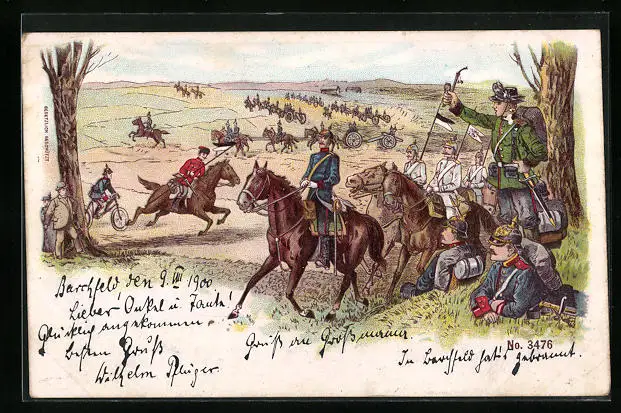 GESETZLICH GESCHÜTZT
No. 3476
Barchfeld, den 9. VIII 1900
Lieber Onkel u Tante!
Glücklich angekommen.
besten Gruß
Wilhelm Pflüger
Gruß an Großmama
In Barchfeld hat's gebrannt.